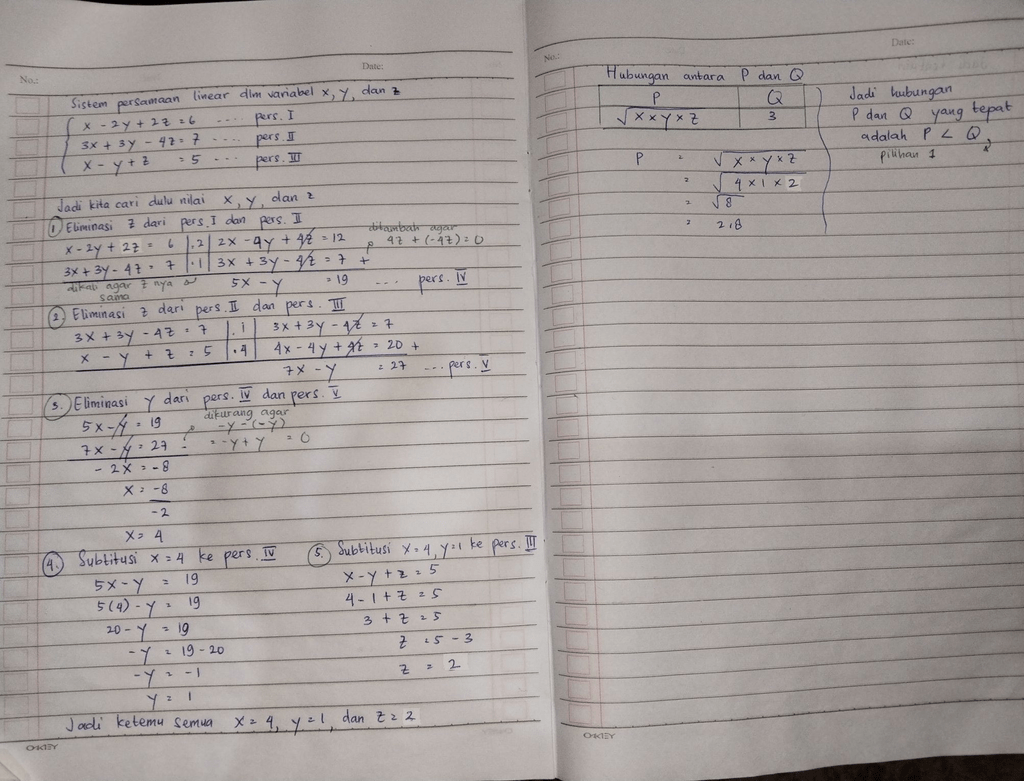 No.:
Date:
Sistem persamaan linear dlm variabel x, y, dan z
x - 2y + 2z = 6 .... pers. I
3x + 3y - 4z = 7 .... pers. II
x - y + z = 5 .... pers. III
Jadi kita cari dulu nilai x, y, dan z
① Eliminasi z dari pers. I dan pers. II
x - 2y + 2z = 6 | .2 | 2x - 4y + 4z = 12
ditambah agar
4z + (-4z) = 0
3x + 3y - 4z = 7 | .1 | 3x + 3y - 4z = 7 +
dikali agar z nya
sama
5x - y = 19 .... pers. IV
② Eliminasi z dari pers. II dan pers. III
3x + 3y - 4z = 7 | .1 | 3x + 3y - 4z = 7
x - y + z = 5 | .4 | 4x - 4y + 4z = 20 +
7x - y = 27 .... pers. V
3. Eliminasi y dari pers. IV dan pers. V
5x - y = 19
dikurang agar
-y - (-y)
7x - y = 27 -
= -y + y = 0
- 2x = -8
x = -8
-2
x = 4
4. Subtitusi x = 4 ke pers. IV
5x - y = 19
5(4) - y = 19
20 - y = 19
-y = 19 - 20
-y = -1
y = 1
5. Subtitusi x = 4, y = 1 ke pers. III
x - y + z = 5
4 - 1 + z = 5
3 + z = 5
z = 5 - 3
z = 2
Jadi ketemu semua x = 4, y = 1, dan z = 2
OKEY
No.:
Date:
Hubungan antara P dan Q
P Q
√x × y × z 3
P = √x × y × z
= √4 × 1 × 2
= √8
= 2,8
Jadi hubungan
P dan Q yang tepat
adalah P < Q,
pilihan 1
OKEY